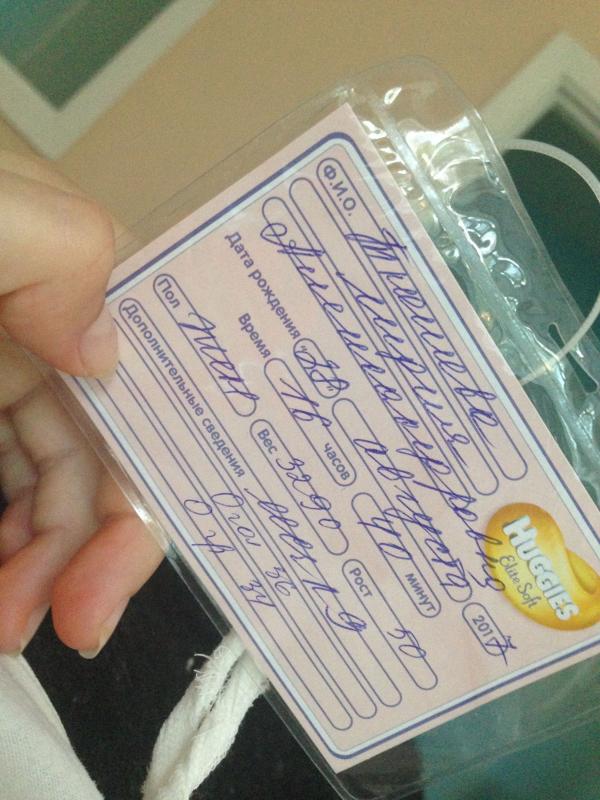 Ф.И.О. Тюшнева
Мирия
Александровна
Дата рождения 22 августа 2017
Время 16 часов 40 минут
Пол жен Вес 3290 Рост 50
Дополнительные сведения
Огол 36
Огр 34
HUGGIES
Elite Soft